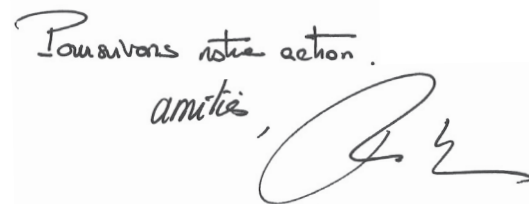 Poursuivons notre action.
amitiés,